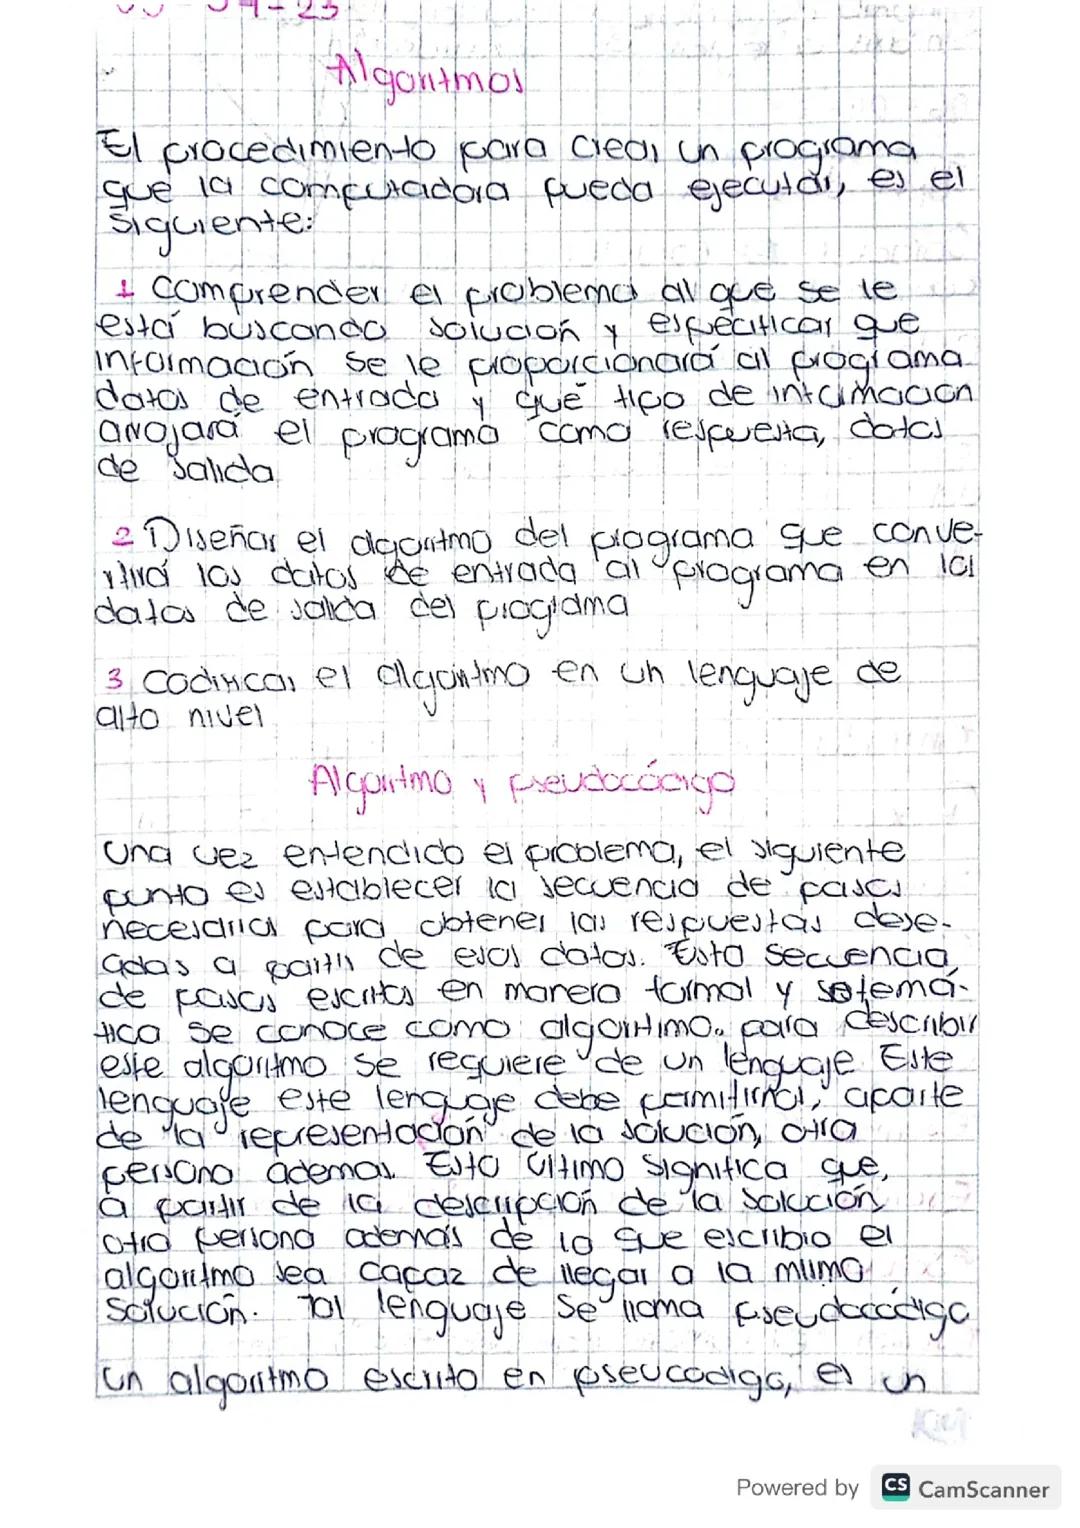 Algoritmos
El procedimiento para crear un programa
que la computadora pueda ejecutar, es el
siguiente:
1 Comprender el problema al que se le
está buscando solución y especificar que
información se le proporcionará al programa
datos de entrada y qué tipo de información
arrojará el programa como respuesta, datos
de salida
2 Diseñar el algoritmo del programa que conve-
rtirá los datos de entrada al programa en los
datos de salida del programa
3 Codificar el algoritmo en un lenguaje de
alto nivel
Algoritmo y pseudocódigo
Una vez entendido el problema, el siguiente
punto es establecer la secuencia de pasos
necesarios para obtener las respuestas dese-
adas a partir de esos datos. Esta secuencia
de pasos escritos en manera formal y sistemá-
tica se conoce como algoritmo. para describir
este algoritmo se requiere de un lenguaje Este
lenguaje este lenguaje debe permitirnos, aparte
de la representación de la solución, otra
persona ademas. Esto último significa que,
a partir de la descripción de la solución
otra persona además de la que escribio el
algoritmo sea capaz de llegar a la misma
solución. Tal lenguaje se llama pseudocódigo
Un algoritmo escrito en pseucodigo, es un
Powered by CS CamScanner